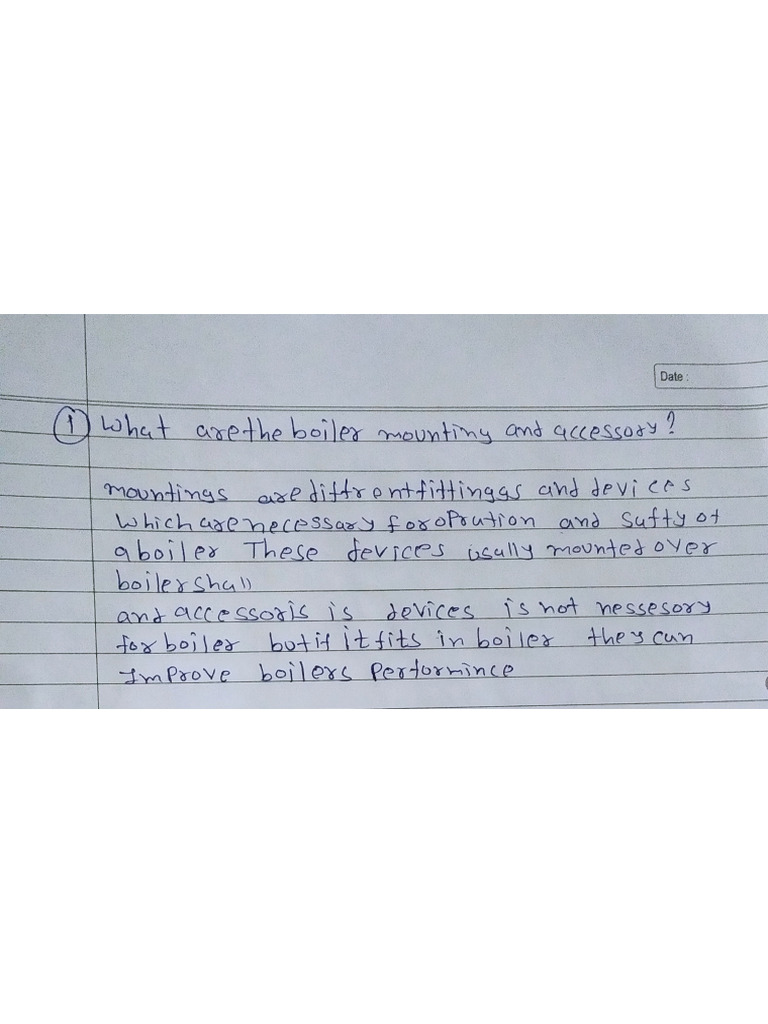 Date :
① What are the boiler mounting and accessory?
mountings are diffrent fittinggs and devices
which are necessary for opration and sufty of
a boiler These devices usally mounted over
boiler shall
and accessoris is devices is not nessesory
for boiler but if it fits in boiler they can
Improve boilers performince